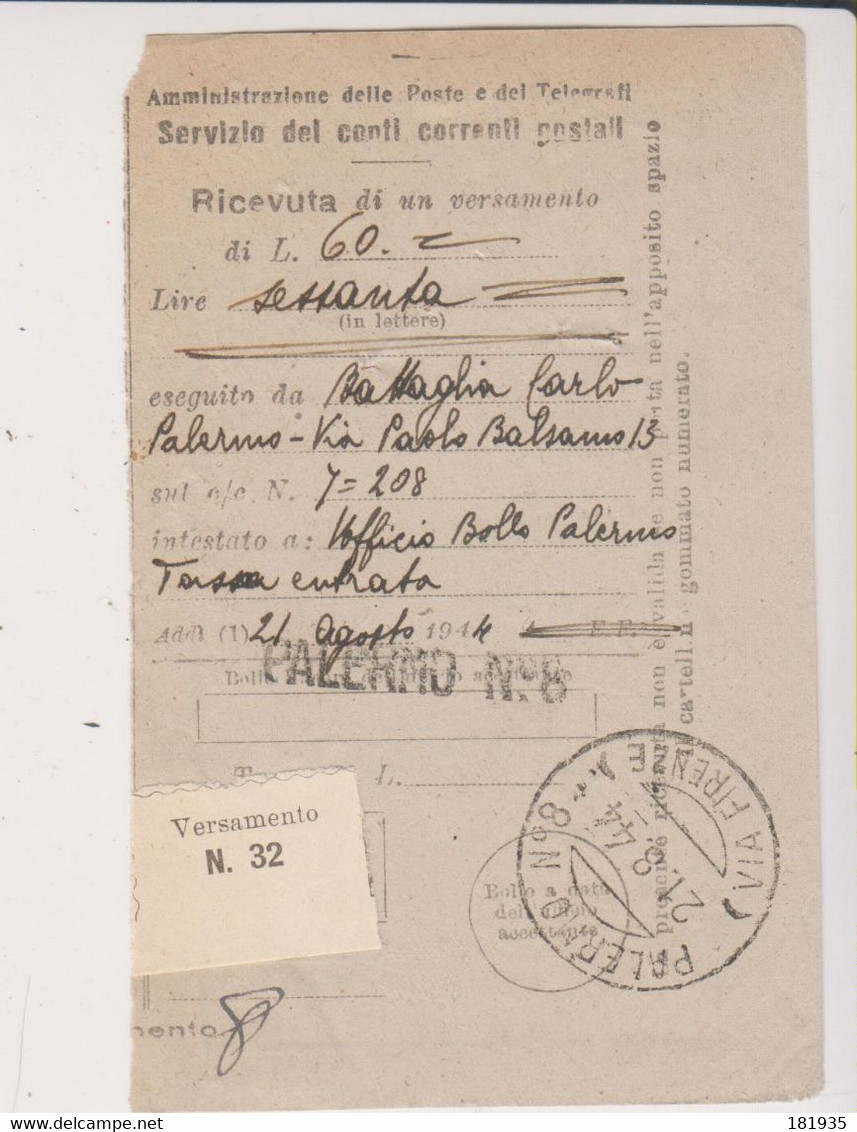 Amministrazione delle Poste e dei Telegrafi
Servizio dei conti correnti postali
Ricevuta di un versamento
di L. 60.
Lire sessanta
(in lettere)
eseguito da Battaglia Carlo
Palermo - Via Paolo Balsamo 13
sul c/c N. 7=208
intestato a: Ufficio Bollo Palermo
Tassa entrata
Addì (1) 21 agosto 1944 E. F.
PALERMO N° 8
L.
Versamento
N. 32
Bollo a data
dell'ufficio
accettante
PALERMO N° 8
(VIA FIRENZE)
21.8.44
mento
La presente ricevuta non è valida se non porta nell'apposito spazio
il cartellino gommato numerato.
181935